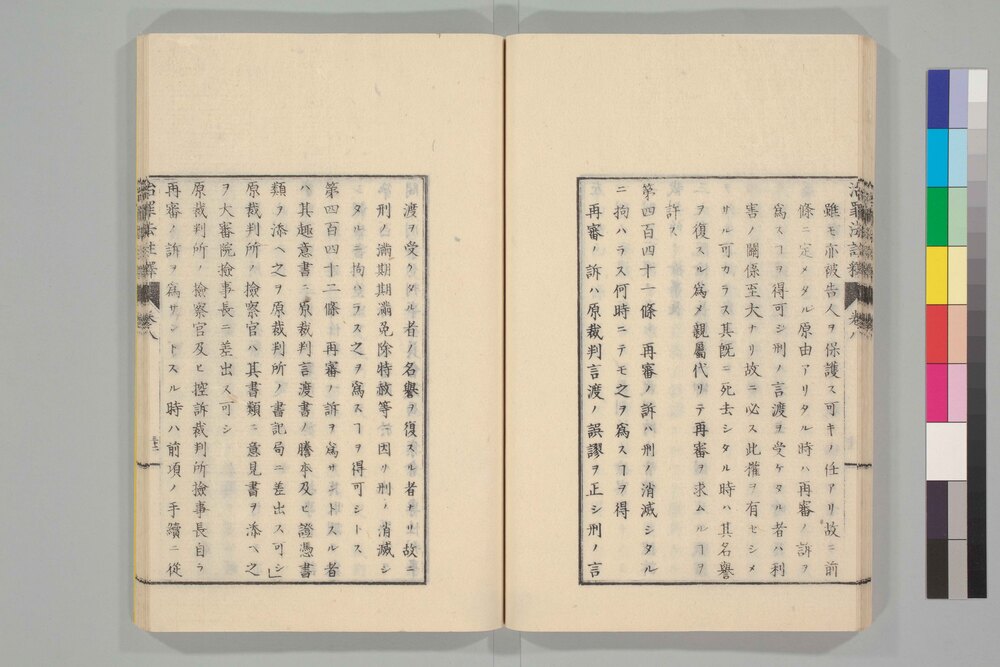 治罪法註釋 卷八
雖モ亦被告人ヲ保護ス可キノ任アリ故ニ前
條ニ定メタル原由アリタル時ハ再審ノ訴ヲ
爲スヿヲ得可シ刑ノ言渡ヲ受ケタル者ハ利
害ノ關係至大ナリ故ニ必ス此權ヲ有セシメ
サル可カラス其既ニ死去シタル時ハ其名譽
ヲ復スル爲メ親屬代リテ再審ヲ求ムルヿヲ
許ス
第四百四十一條 再審ノ訴ハ刑ノ消滅シタル
ニ拘ハラス何時ニテモ之ヲ爲スヿヲ得
再審ノ訴ハ原裁判言渡ノ誤謬ヲ正シ刑ノ言
渡ヲ受ケタル者ノ名譽ヲ復スル者ナリ故ニ
刑ノ滿期期滿免除特赦等ニ因リ刑ノ消滅シ
タルニ拘ハラス之ヲ爲スヿヲ得可シトス
第四百四十二條 再審ノ訴ヲ爲サントスル者
ハ其趣意書ニ原裁判言渡書ノ謄本及ヒ證憑書
類ヲ添ヘ之ヲ原裁判所ノ書記局ニ差出ス可シ」
原裁判所ノ檢察官ハ其書類ニ意見書ヲ添ヘ之
ヲ大審院檢事長ニ差出ス可シ
原裁判所ノ檢察官及ヒ控訴裁判所檢事長自ラ
再審ノ訴ヲ爲サントスル時ハ前項ノ手續ニ從
治罪法註釋 卷八